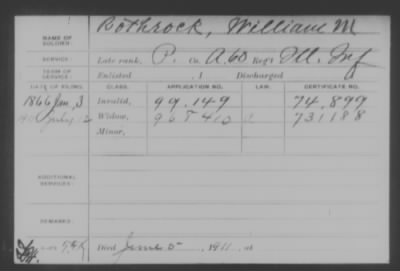 NAME OF SOLDIER: Bothrock, William M
SERVICE: Late rank, P. Co. A, 60 Reg't Ill. Inf
TERM OF SERVICE: Enlisted , 1 Discharged
DATE OF FILING. CLASS. APPLICATION NO. LAW. CERTIFICATE NO.
1866 Jan, 3 Invalid, 99.149 74,899
Widow, 731188
Minor,
ADDITIONAL SERVICES:
REMARKS:
Died June 5 , 1911, at